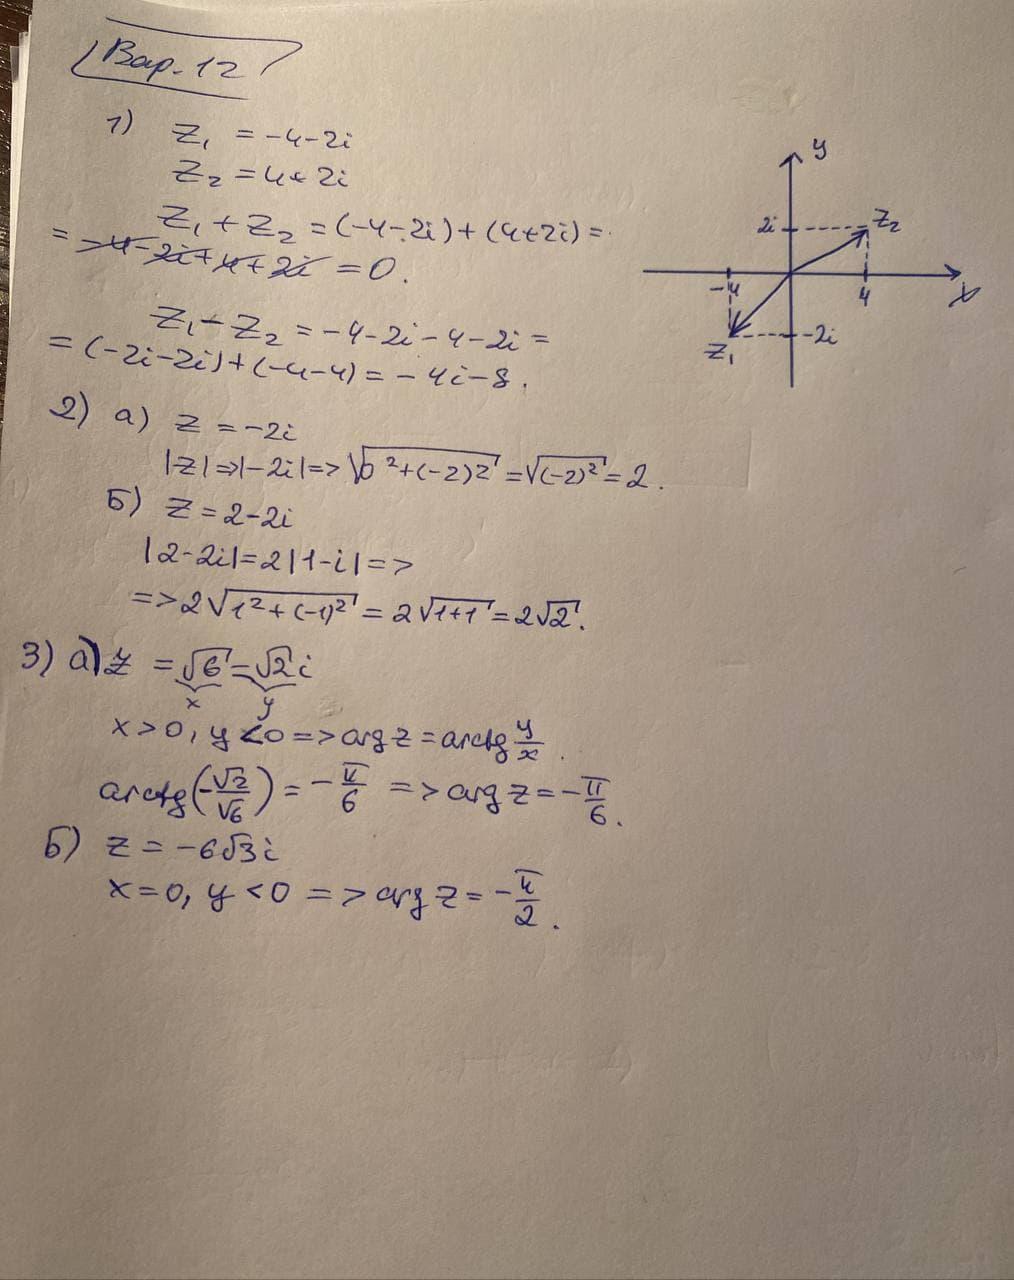 Вар. 12
1) Z₁ = -4-2i
Z₂ = 4+2i
Z₁ + Z₂ = (-4-2i) + (4+2i) =
= -4-2i+4+2i = 0.
Z₁ - Z₂ = -4-2i-4-2i =
= (-2i-2i)+(-4-4) = -4i-8.
y
2i
Z₂
-4
4
x
Z₁
-2i
2) a) Z = -2i
|Z| => |-2i| => √0²+(-2)2 = √(-2)² = 2.
Б) Z = 2-2i
|2-2i| = 2|1-i| =>
=> 2√1²+(-1)² = 2√1+1 = 2√2.
3) a) Z = √6 - √2 i
x y
x>0, y<0 => arg z = arctg y/x.
arctg(-√2/√6) = -π/6 => arg z = -π/6.
Б) Z = -6√3i
x=0, y<0 => arg z = -π/2.